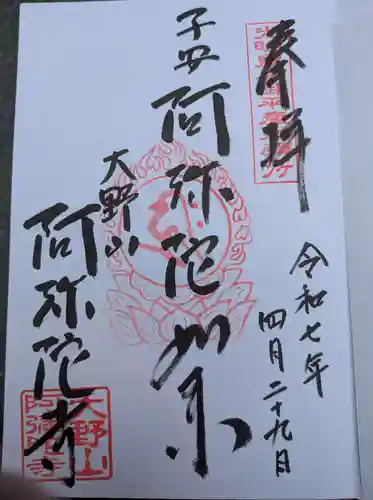 奉拝
令和七年
四月二十九日
子安
阿弥陀如来
大野山
阿弥陀寺
大野山
阿彌陀寺